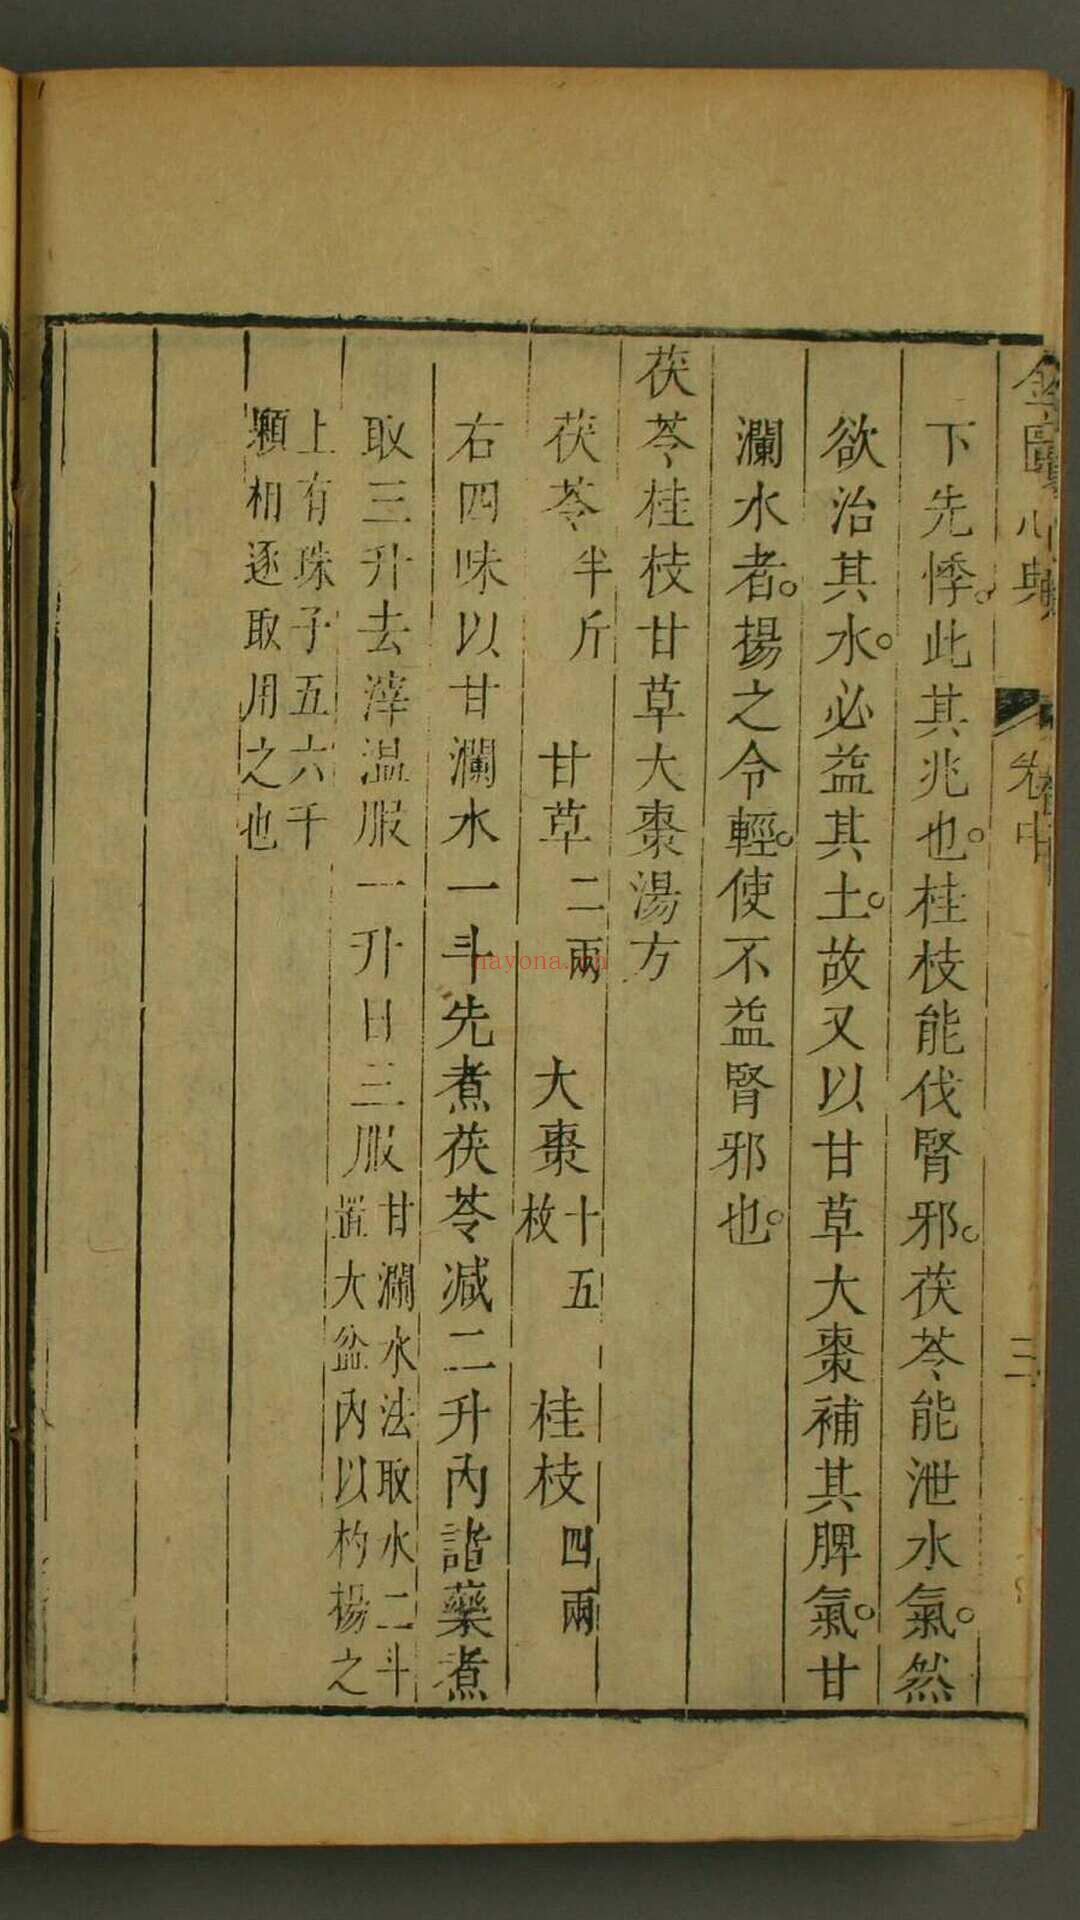 金匱心典 卷中 三
下先悸。此其兆也。桂枝能伐腎邪。茯苓能泄水氣。然
欲治其水。必益其土。故又以甘草大棗補其脾氣。甘
瀾水者。揚之令輕。使不益腎邪也。
茯苓桂枝甘草大棗湯方
茯苓半斤 甘草二兩 大棗十五枚 桂枝四兩
右四味以甘瀾水一斗先煮茯苓减二升內諸藥煮
取三升去滓溫服一升日三服甘瀾水法取水二斗
置大盆內以杓揚之
上有珠子五六千
顆相逐取用之也
nayona.cn